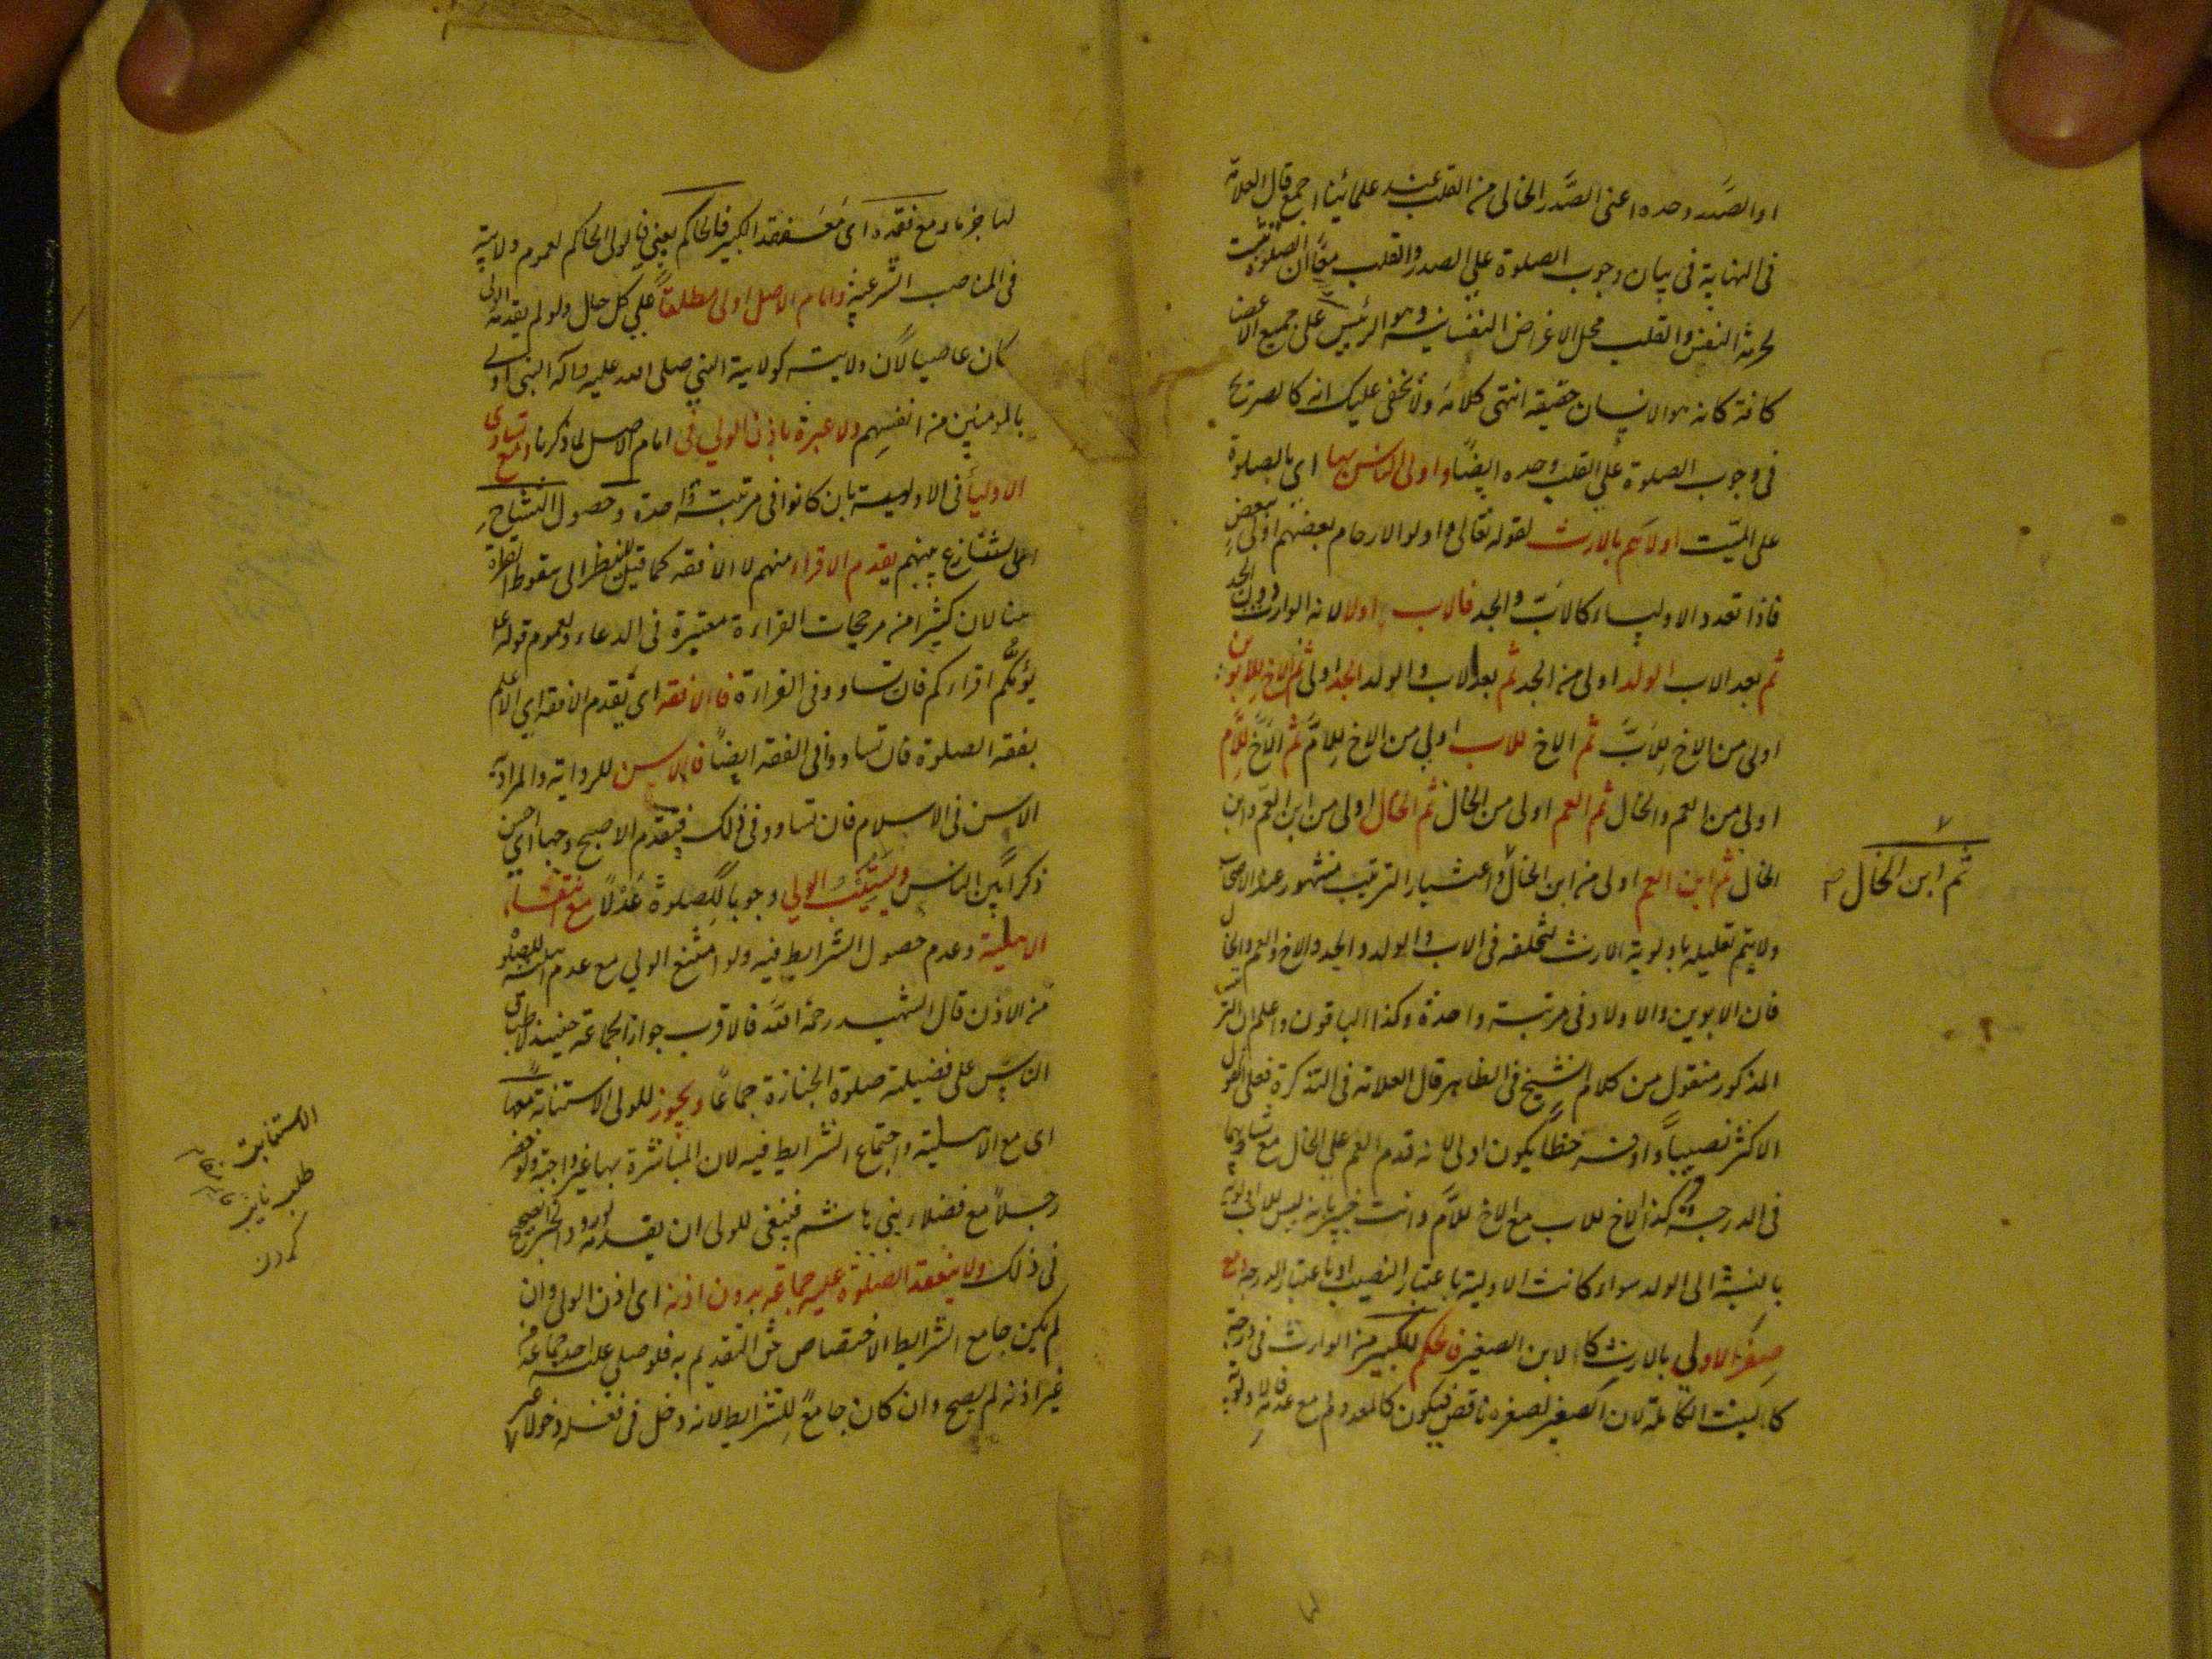 او الصدر وحده اعنى الصَّدر الخالى من القلب عند علمائنا اجمع قال العلامة
فى النهاية فى بيان وجوب الصلوة على الصدر والقلب معًا ان الصلوة تثبت
لحرمة النفس والقلب محل الاغراض النفسانية وهو الرئيس على جميع الاعضا
كافة كانه هو الانسان حقيقة انتهى كلامه ولا يخفى عليك انه كالصريح
فى وجوب الصلوة على القلب وحده ايضًا واولى الناس بها اى بالصلوة
على الميّت اولاهم بالارث لقوله تعالى واولو الارحام بعضهم اولى ببعض
فاذا تعدد الاولياء كالابّ والجد فالاب اولا لانه الوارث دون الجد
ثم بعد الاب الولد اولى من الجد ثم بعد الاب والولد الجد اولى ثم الاخ للابوين
اولى من الاخ للابّ ثم الاخ للاب اولى من الاخ للامّ ثم الاخ للامّ
اولى من العم والخال ثم العم اولى من الخال ثم الخال اولى من ابن العم وابن
الخال ثم ابن العم اولى من ابن الخال واعتبار الترتيب مشهور عند الاصحاب
ثم ابن الخال صح
ولا يتم تعليله باولوية الارث لتخلفه فى الاب والولد والجد والاخ والعم والخال
فان الابوين والاولاد فى مرتبة واحدة وكذا الباقون واعلم ان
المذكور منقول من كلام الشيخ فى الظاهر قال العلامة فى التذكرة فعلى القول
الاكثر نصيباً واوفر حظا يكون اولى لانه قدم العم على الخال مع تساويهما
فى الدرجة وكذا الاخ للاب مع الاخ للامّ وانت خبير بانه ليس للاب
بالنسبة الى الولد سواء كانت الاولية باعتبار النصيب او باعتبار الدرجة ومع
صغر الاولى بالارث كالابن الصغير فالحكم للكبير من الوارث فى درجة
كالبنت الكاملة لان الصغير لصغره ناقص فيكون كالمعدوم مع عدم ولاية
لها جزما ومع فقده اى مع فقد الكبير فالحاكم يعنى فالولى الحاكم لعموم ولايته
فى المناصب الشرعية وامام الاصل اولى مطلقاً على كل حال ولو لم يقدمه الولى
كان عاصيا لان ولايته كولاية النبي صلى الله عليه وآله النبى اولى
بالمومنين من انفسهم ولا عبرة باذن الولي فى امام الاصل لما ذكرنا ومع تساوى
الاولياء فى الاولوية بان كانوا فى مرتبة واحدة وحصول التشاح
اى التنازع بينهم يقدم الاقراء منهم لا الافقه كما قيل للنظر الى سقوط القراءة
هنا لان كثيرا من مرجحات القراءة معتبرة فى الدعاء ولعموم قوله ع
يؤمّكم اقراءكم فان تساووا فى القراءة فالافقه اى يقدم الافقه اى الاعلم
بفقه الصلوة فان تساووا فى الفقه ايضاً فالاسن للرواية والمراد به
الاسن فى الاسلام فان تساووا فى ذلك فيقدم الاصبح وجها اى احسن
ذكرا بين الناس ويستنيب الولي وجوبا للصلوة عدلا مع انتفاء
الاهلية وعدم حصول الشرايط فيه ولو امتنع الولي مع عدم اهليته للصلوة
من الاذن قال الشهيد رحمه الله فالاقرب جواز الجماعة حينئذ لاطباق
الناس على فضيلة صلوة الجنازة جماعًا ويجوز للولى الاستنابة معها
اى مع الاهلية واجتماع الشرايط فيه لان المباشرة بها غير واجبة ولو حضر
رجلا مع فضلاء بني هاشم فينبغى للولى ان يقدمه لورود الخبر الصحيح
فى ذلك ولا ينعقد الصلوة عليه جماعة بدون اذنه اى اذن الولى وان
لم يكن جامع الشرايط لاختصاص حق التقديم به فلو صلى عليه احد جماعة من
غير اذنه لم يصح وان كان جامعً للشرايط لانه دخل فى نفسه دخولا غير
الاستنابت
طلب نايب
كردن